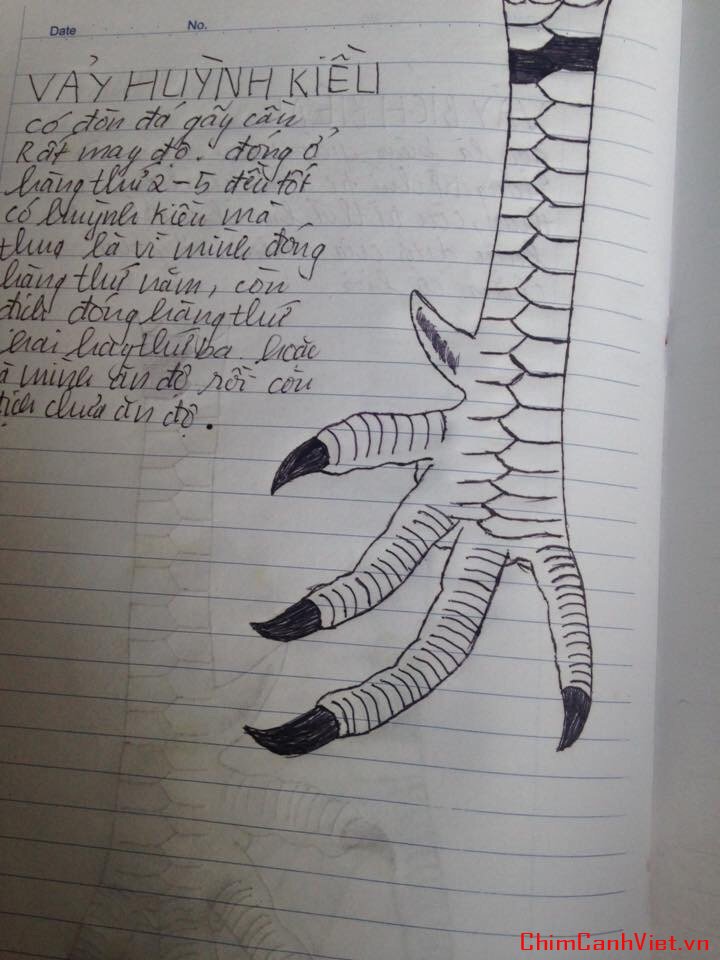 Date No.
VẢY HUỲNH KIỀU
có đòn đá gãy cần
Rất may độ. đóng ở
hàng thứ 2-5 đều tốt
có huỳnh kiều mà
thua là vì mình đóng
hàng thứ năm, còn
địch đóng hàng thứ
hai hay thứ ba. hoặc
là mình ăn độ rồi còn
địch chưa ăn độ.
ChimCanhViet.vn